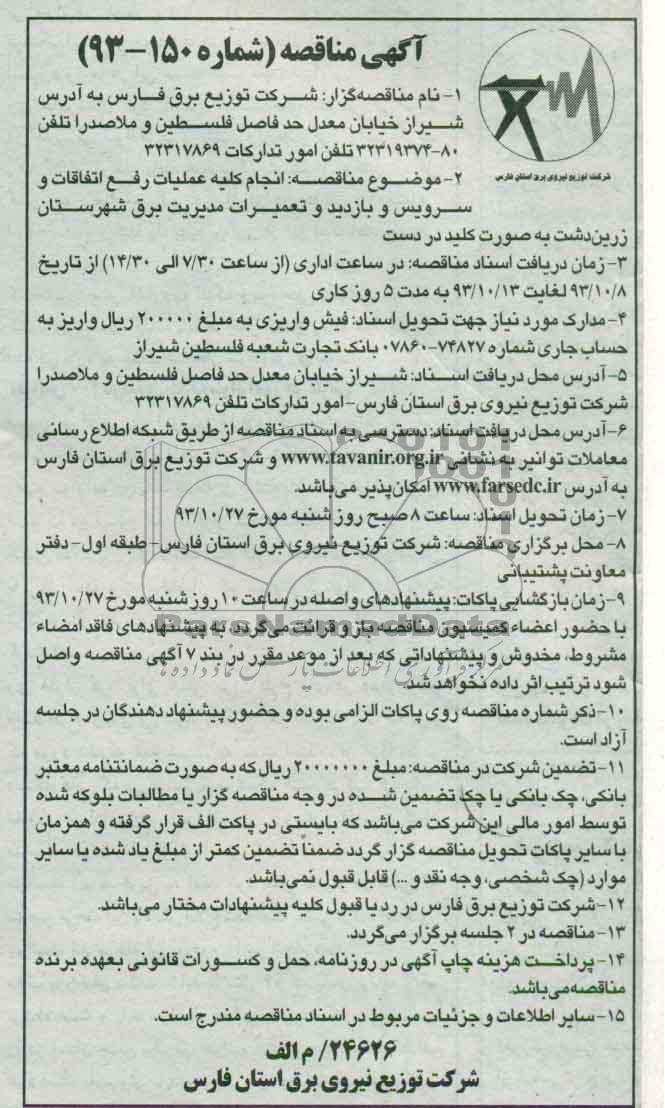 آگهی مناقصه (شماره ۱۵۰-۹۳)
شرکت توزیع نیروی برق استان فارس
۱- نام مناقصه‌گزار: شرکت توزیع برق فارس به آدرس
شیراز خیابان معدل حد فاصل فلسطین و ملاصدرا تلفن
۸۰-۳۲۳۱۹۳۷۴ تلفن امور تدارکات ۳۲۳۱۷۸۶۹
۲- موضوع مناقصه: انجام کلیه عملیات رفع اتفاقات و
سرویس و بازدید و تعمیرات مدیریت برق شهرستان
زرین‌دشت به صورت کلید در دست
۳- زمان دریافت اسناد مناقصه: در ساعت اداری (از ساعت ۷/۳۰ الی ۱۴/۳۰) از تاریخ
۹۳/۱۰/۸ لغایت ۹۳/۱۰/۱۳ به مدت ۵ روز کاری
۴- مدارک مورد نیاز جهت تحویل اسناد: فیش واریزی به مبلغ ۲۰۰۰۰۰ ریال واریز به
حساب جاری شماره ۷۴۸۲۷-۰۷۸۶۰ بانک تجارت شعبه فلسطین شیراز
۵- آدرس محل دریافت اسناد: شیراز خیابان معدل حد فاصل فلسطین و ملاصدرا
شرکت توزیع نیروی برق استان فارس- امور تدارکات تلفن ۳۲۳۱۷۸۶۹
۶- آدرس محل دریافت اسناد: دسترسی به اسناد مناقصه از طریق شبکه اطلاع رسانی
معاملات توانیر به نشانی www.tavanir.org.ir و شرکت توزیع برق استان فارس
به آدرس www.farsedc.ir امکان‌پذیر می‌باشد.
۷- زمان تحویل اسناد: ساعت ۸ صبح روز شنبه مورخ ۹۳/۱۰/۲۷
۸- محل برگزاری مناقصه: شرکت توزیع نیروی برق استان فارس- طبقه اول- دفتر
معاونت پشتیبانی
۹- زمان بازگشایی پاکات: پیشنهادهای واصله در ساعت ۱۰ روز شنبه مورخ ۹۳/۱۰/۲۷
با حضور اعضاء کمیسیون مناقصه باز و قرائت می‌گردد. به پیشنهادهای فاقد امضاء
مشروط، مخدوش و پیشنهاداتی که بعد از موعد مقرر در بند ۷ آگهی مناقصه واصل
شود ترتیب اثر داده نخواهد شد.
۱۰- ذکر شماره مناقصه روی پاکات الزامی بوده و حضور پیشنهاد دهندگان در جلسه
آزاد است.
۱۱- تضمین شرکت در مناقصه: مبلغ ۲۰۰۰۰۰۰۰ ریال که به صورت ضمانتنامه معتبر
بانکی، چک بانکی یا چک تضمین شده در وجه مناقصه گزار یا مطالبات بلوکه شده
توسط امور مالی این شرکت می‌باشد که بایستی در پاکت الف قرار گرفته و همزمان
با سایر پاکات تحویل مناقصه گزار گردد ضمناً تضمین کمتر از مبلغ یاد شده یا سایر
موارد (چک شخصی، وجه نقد و ...) قابل قبول نمی‌باشد.
۱۲- شرکت توزیع برق فارس در رد یا قبول کلیه پیشنهادات مختار می‌باشد.
۱۳- مناقصه در ۲ جلسه برگزار می‌گردد.
۱۴- پرداخت هزینه چاپ آگهی در روزنامه، حمل و کسورات قانونی بعهده برنده
مناقصه می‌باشد.
۱۵- سایر اطلاعات و جزئیات مربوط در اسناد مناقصه مندرج است.
۲۴۶۲۶/ م الف
شرکت توزیع نیروی برق استان فارس
ParsNamadData